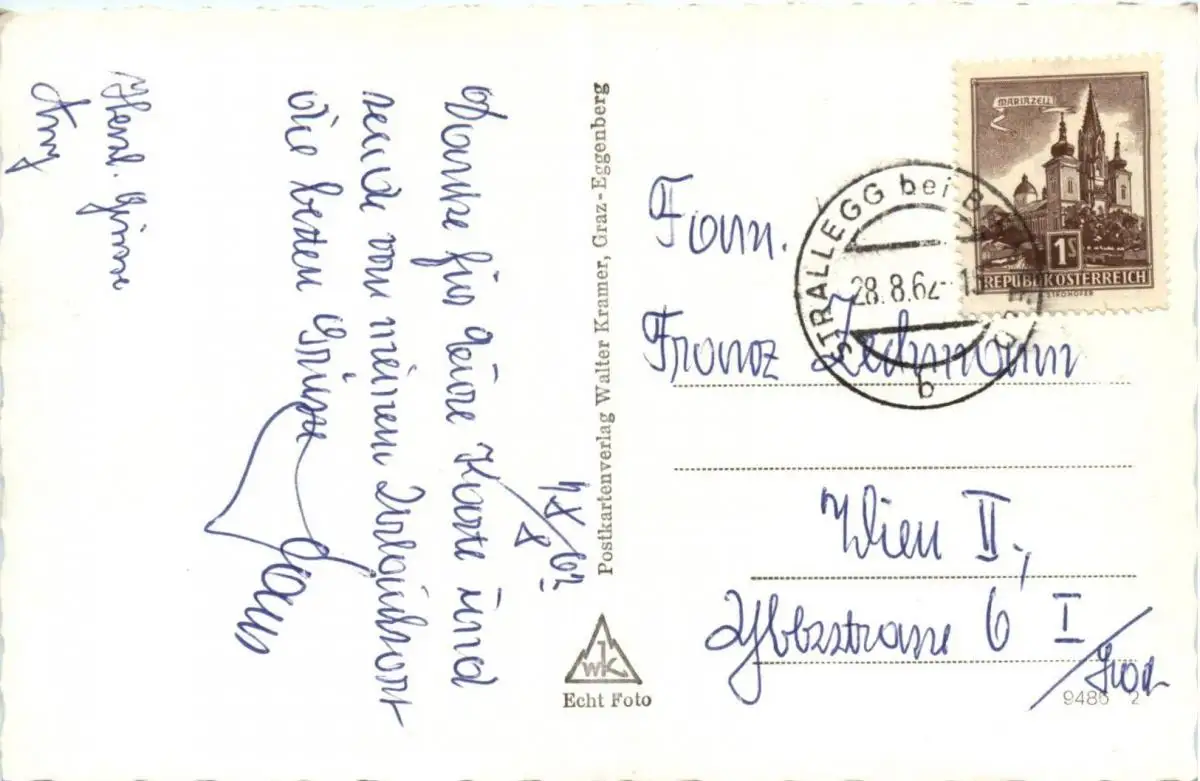 Danke für Eure Karte und
sende von meinem Urlaubsort
die besten Grüsse
Herzl. Grüsse
Postkartenverlag Walter Kramer, Graz-Eggenberg
WK
Echt Foto
MARIAZELL
1S
REPUBLIK ÖSTERREICH
STROHOFER
STRALLEGG bei B
28.8.62
b
Fam.
Franz Zechmann
Wien II.,
Ybbsstrasse 6 I
9486 2